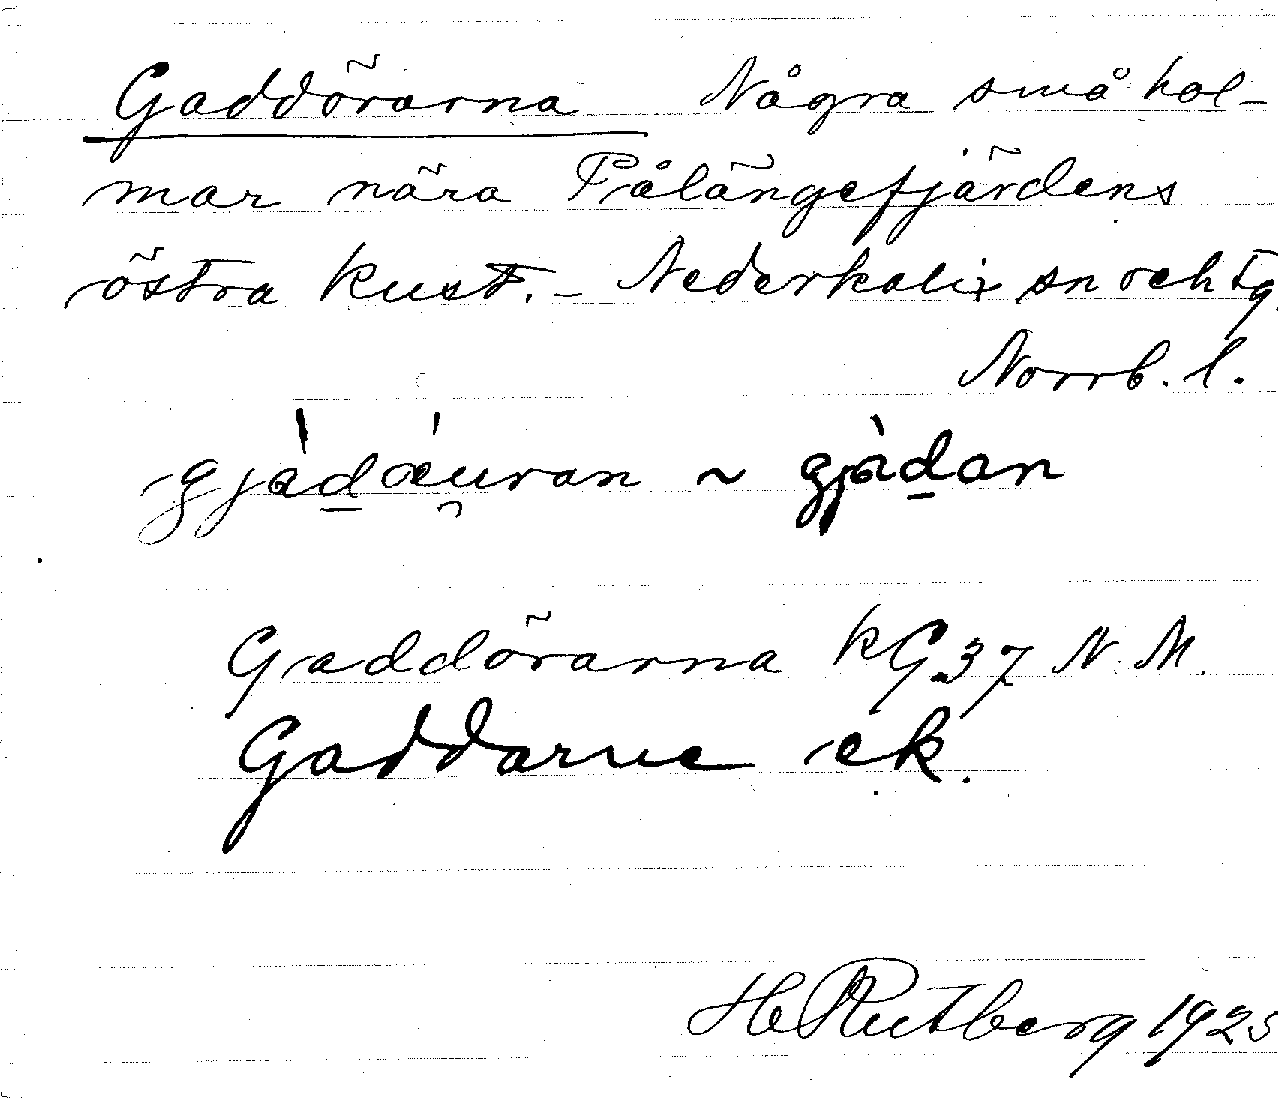 Gaddörarna Några små hol-
mar nära Pålängefjärdens
östra kust. - Nederkalix sn och tg.
Norrb. l.
gjàd̠ǽu̯ran ~ gjàd̠an
Gaddörarna kG.37 N. M.
Gaddarne ek.
H Rutberg 1925